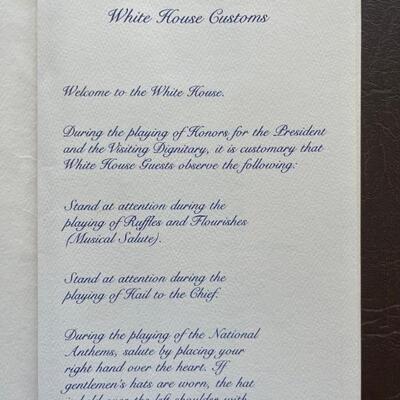 White House Customs
Welcome to the White House.
During the playing of Honors for the President
and the Visiting Dignitary, it is customary that
White House Guests observe the following:
Stand at attention during the
playing of Ruffles and Flourishes
(Musical Salute).
Stand at attention during the
playing of Hail to the Chief.
During the playing of the National
Anthems, salute by placing your
right hand over the heart. If
gentlemen's hats are worn, the hat
is held over the left shoulder with